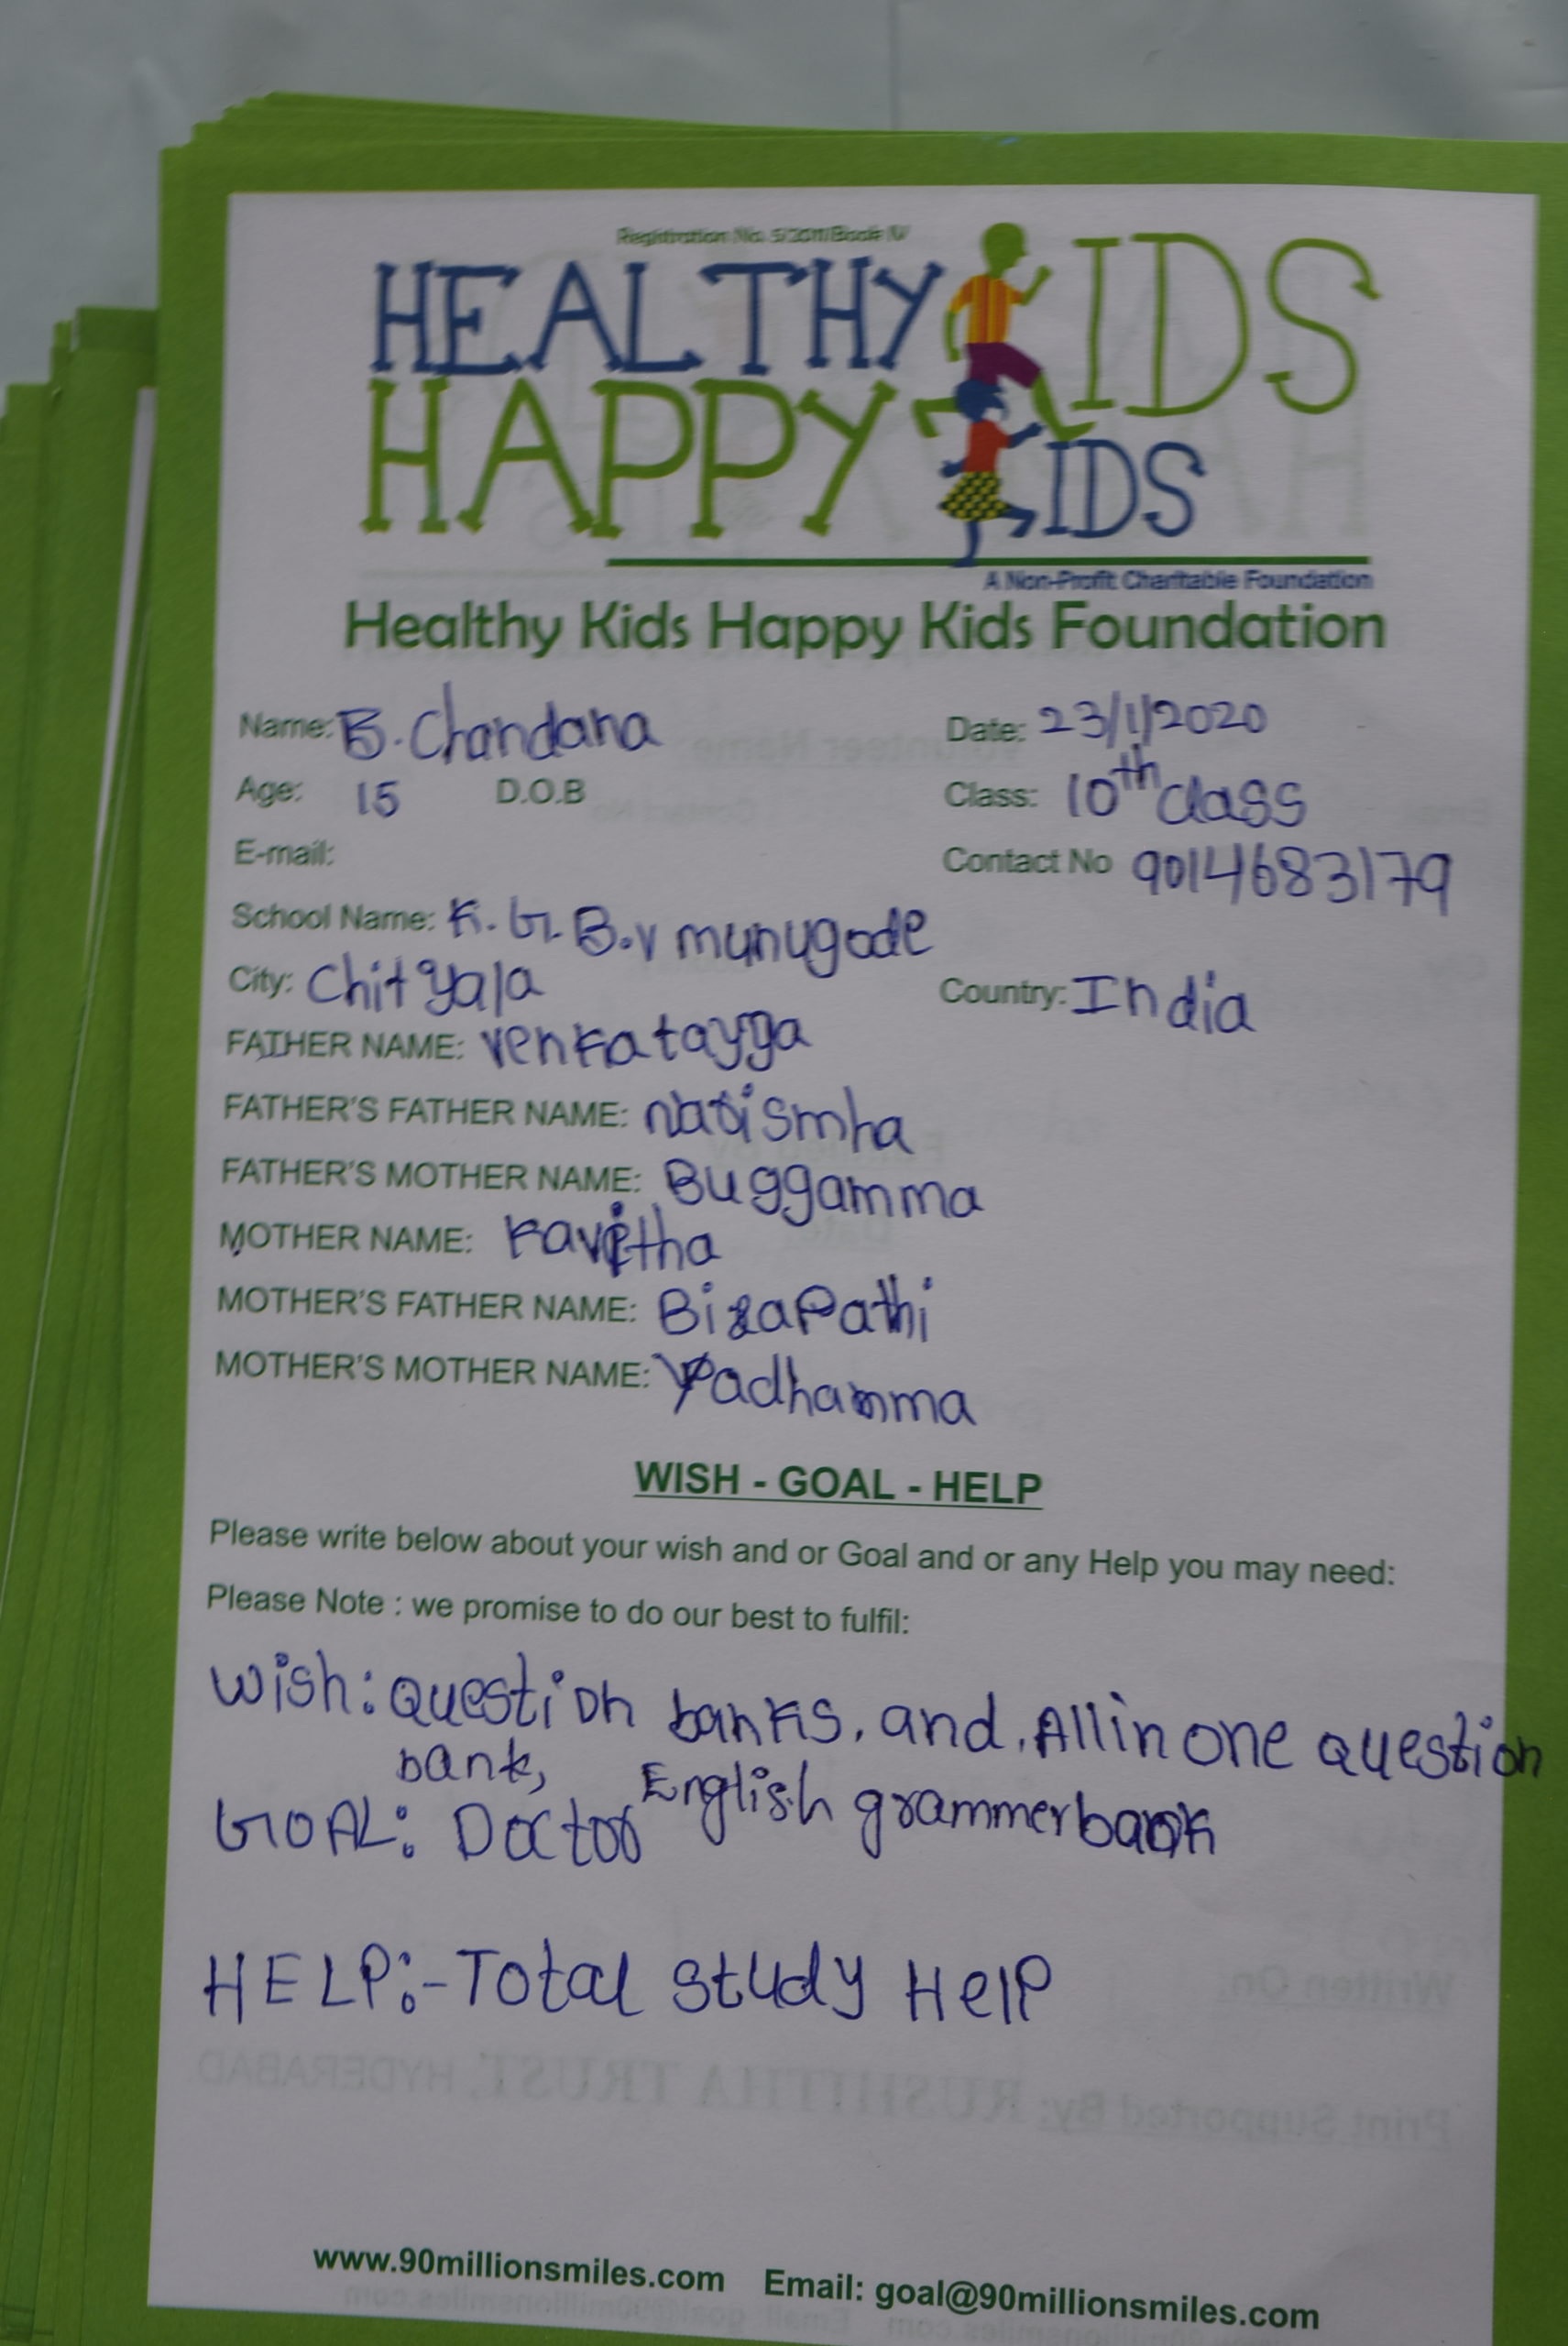 Registration No. 5/2011/Book IV
HEALTHY KIDS
HAPPY KIDS
A Non-Profit Charitable Foundation
Healthy Kids Happy Kids Foundation
Name: B. Chandana Date: 23/1/2020
Age: 15 D.O.B Class: 10th class
E-mail: Contact No 9014683179
School Name: K. G. B.V munugode
City: Chityala Country: India
FATHER NAME: venkatayya
FATHER'S FATHER NAME: narismha
FATHER'S MOTHER NAME: Buggamma
MOTHER NAME: Kavitha
MOTHER'S FATHER NAME: BiraPathi
MOTHER'S MOTHER NAME: Yadhamma
WISH - GOAL - HELP
Please write below about your wish and or Goal and or any Help you may need:
Please Note : we promise to do our best to fulfil:
Wish: question banks. and. All in one question
bank, English grammer book
GOAL: Doctor
HELP:- Total study Help
Written On
Print Supported By: RUSHITHA TRUST, HYDERABAD
www.90millionsmiles.com Email: goal@90millionsmiles.com